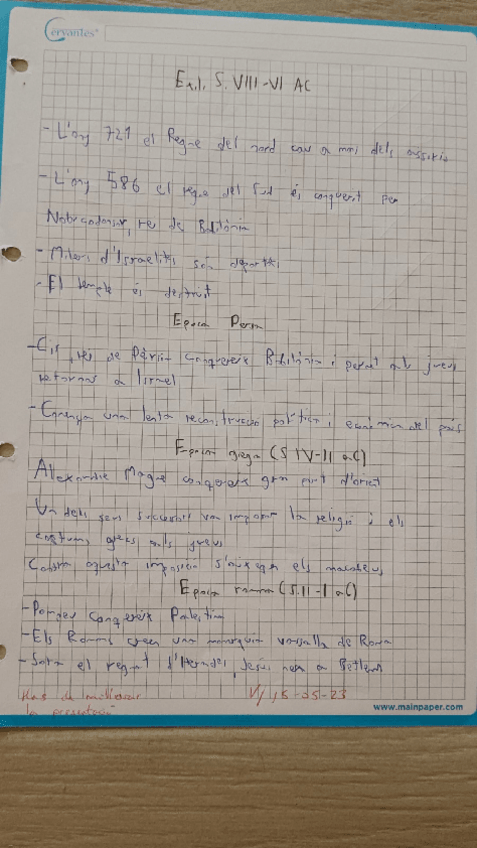 Cervantes
Exili S. VIII-VI AC
- L'any 721 el Regne del nord cau a mans dels assiris
- L'any 586 el regne del Sud és conquerit per
Nabucodonosor, rei de Babilònia
- Milers d'Israelites són deportats
- El temple és destruit
Epoca Persa
- Cir, rei de Pèrsia conquereix Babilònia i permet als jueus
retornar a Israel
- Comença una lenta reconstrucció política i econòmica del país
Epoca grega (S IV-II aC)
Alexandre Magne conquereix gran part d'orient
Un dels seus successors va imposar la religió i els
costums grecs als jueus
Contra aquesta imposición s'aixequen els macabeus
Epoca romana (S.II-I aC)
- Pompeu conquereix Palestina
- Els Romans creen una monarquia vassalla de Roma
- Sota el regnat d'Herodes, Jesús neix a Betlem
Has de millorar
la presentació
15-05-23
www.mainpaper.com